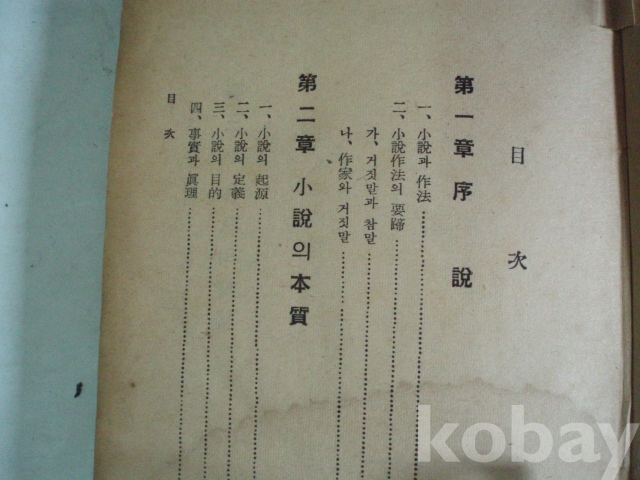 目次
第一章 序說
一、小說과 作法
二、小說作法의 要蹄
가、거짓말과 참말
나、作家와 거짓말
第二章 小說의 本質
一、小說의 起源
二、小說의 定義
三、小說의 目的
四、事實과 眞理
目次
kobay